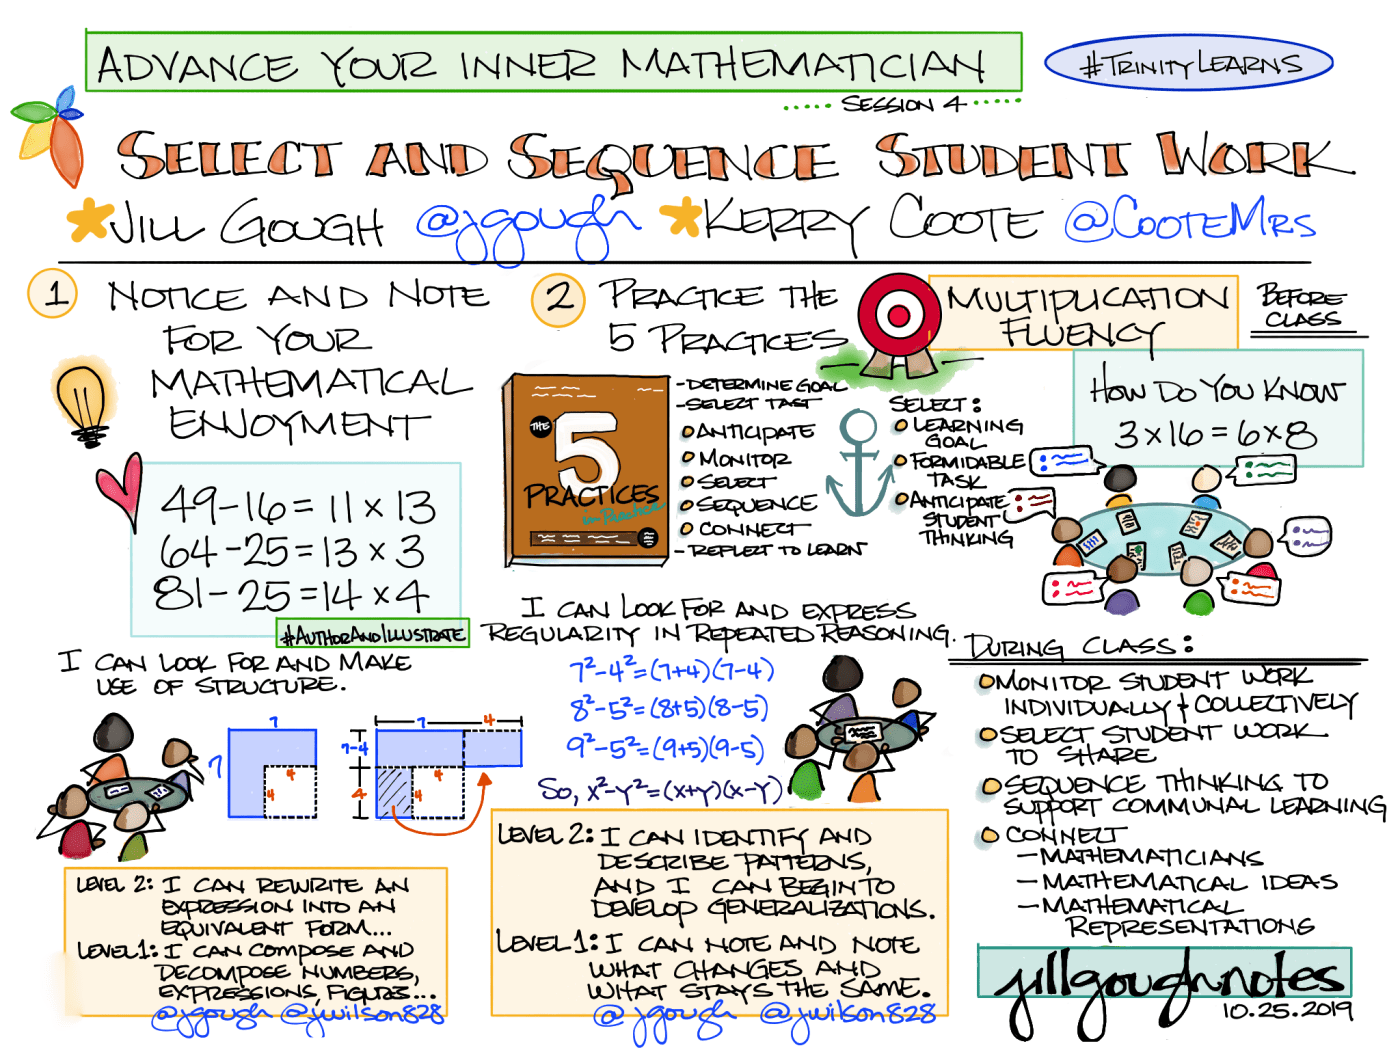 ADVANCE YOUR INNER MATHEMATICIAN
#TRINITYLEARNS
SESSION 4
SELECT AND SEQUENCE STUDENT WORK
JILL GOUGH @jgough KERRY COOTE @COOTEMRS
1 NOTICE AND NOTE
FOR YOUR
MATHEMATICAL
ENJOYMENT
49-16=11×13
64-25=13×3
81-25=14×4
#AUTHORANDILLUSTRATE
I CAN LOOK FOR AND MAKE
USE OF STRUCTURE.
7
7
4
4
7
4
7-4
4
4
4
LEVEL 2: I CAN REWRITE AN
EXPRESSION INTO AN
EQUIVALENT FORM...
LEVEL 1: I CAN COMPOSE AND
DECOMPOSE NUMBERS,
EXPRESSIONS, FIGURES...
@jgough @jwilson828
2 PRACTICE THE
5 PRACTICES
THE
5
PRACTICES
in Practice
-DETERMINE GOAL
-SELECT TASK
ANTICIPATE
MONITOR
SELECT
SEQUENCE
CONNECT
-REFLECT TO LEARN
I CAN LOOK FOR AND EXPRESS
REGULARITY IN REPEATED REASONING.
7²-4²=(7+4)(7-4)
8²-5²=(8+5)(8-5)
9²-5²=(9+5)(9-5)
SO, X²-Y²=(X+Y)(X-Y)
LEVEL 2: I CAN IDENTIFY AND
DESCRIBE PATTERNS,
AND I CAN BEGIN TO
DEVELOP GENERALIZATIONS.
LEVEL 1: I CAN NOTE AND NOTE
WHAT CHANGES AND
WHAT STAYS THE SAME.
@jgough @jwilson828
MULTIPLICATION
FLUENCY
BEFORE
CLASS
HOW DO YOU KNOW
3×16=6×8
SELECT:
LEARNING
GOAL
FORMIDABLE
TASK
ANTICIPATE
STUDENT
THINKING
DURING CLASS:
MONITOR STUDENT WORK
INDIVIDUALLY + COLLECTIVELY
SELECT STUDENT WORK
TO SHARE
SEQUENCE THINKING TO
SUPPORT COMMUNAL LEARNING
CONNECT
-MATHEMATICIANS
-MATHEMATICAL IDEAS
-MATHEMATICAL
REPRESENTATIONS
jillgoughnotes
10.25.2019